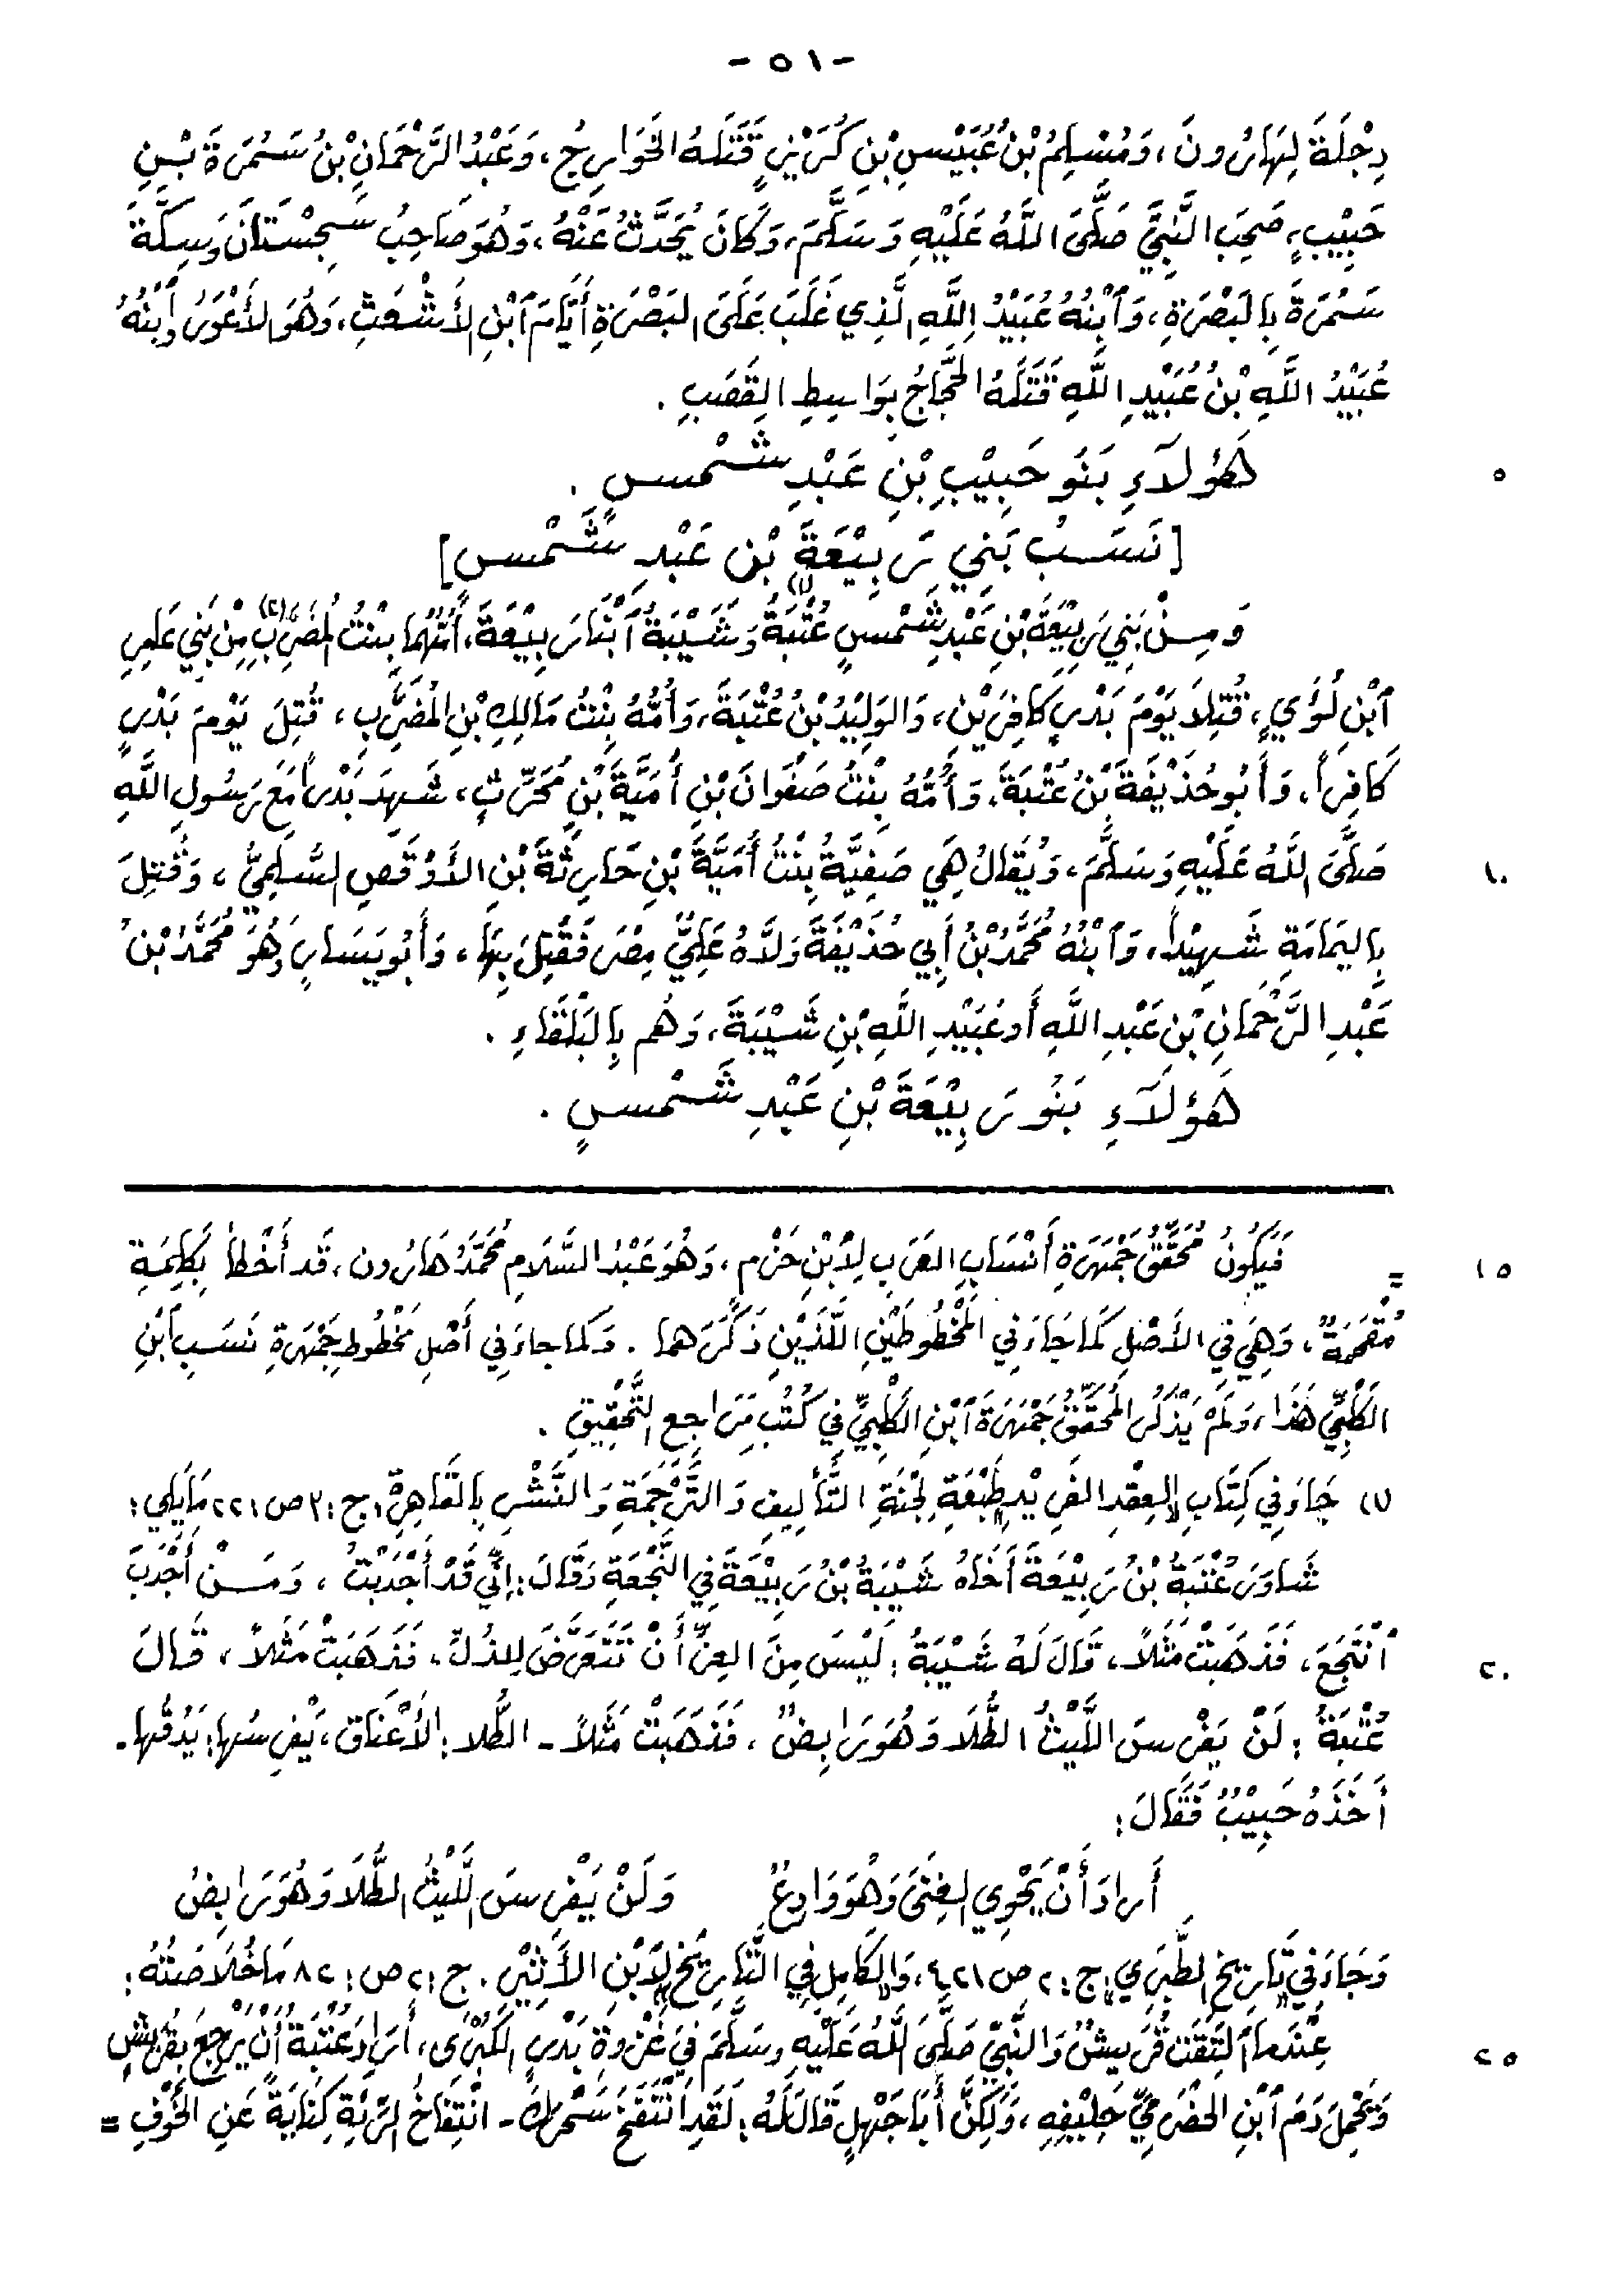 - ٥١ -
دِجْلَةَ لِهَارُونَ، وَمُسْلِمُ بْنُ عُبَيْسِ بْنِ كُرَيْزٍ قَتَلَهُ الخَوَارِجُ، وَعَبْدُ الرَّحْمَانِ بْنُ سَمُرَةَ بْنِ
حَبِيْبٍ، صَحِبَ النَّبِيَّ صَلَّى اللَّهُ عَلَيْهِ وَسَلَّمَ، وَكَانَ يُحَدَّثُ عَنْهُ، وَهُوَ صَاحِبُ سِجِسْتَانَ وَسِكَّةَ
سَمُرَةَ بِالبَصْرَةِ، وَابْنُهُ عُبَيْدُ اللَّهِ الَّذِي غَلَبَ عَلَى البَصْرَةِ أَيَّامَ ابْنِ الأَشْعَثِ، وَهُوَ الأَعْوَرُ وَابْنُهُ
عُبَيْدُ اللَّهِ بْنُ عُبَيْدِ اللَّهِ قَتَلَهُ الحَجَّاجُ بِوَاسِطِ القَصَبِ.
هَؤُلاَءِ بَنُو حَبِيْبِ بْنِ عَبْدِ شَمْسٍ. ٥
[نَسَبُ بَنِي رَبِيْعَةَ بْنِ عَبْدِ شَمْسٍ]
وَمِنْ بَنِي رَبِيْعَةَ بْنِ عَبْدِ شَمْسٍ عُتْبَةُ (١) وَشَيْبَةُ ابْنَا رَبِيْعَةَ، أُمُّهُمَا بِنْتُ المُضَرِّبِ (٢) مِنْ بَنِي عَامِرِ
ابْنِ لُؤَيٍّ، قُتِلاَ يَوْمَ بَدْرٍ كَافِرَيْنِ، وَالوَلِيْدُ بْنُ عُتْبَةَ، وَأُمُّهُ بِنْتُ مَالِكِ بْنِ المُضَرِّبِ، قُتِلَ يَوْمَ بَدْرٍ
كَافِراً، وَأَبُو حُذَيْفَةَ بْنُ عُتْبَةَ، وَأُمُّهُ بِنْتُ صَفْوَانَ بْنِ أُمَيَّةَ بْنِ مُحَرِّثٍ، شَهِدَ بَدْراً مَعَ رَسُولِ اللَّهِ
صَلَّى اللَّهُ عَلَيْهِ وَسَلَّمَ، وَيُقَالُ هِيَ صَفِيَّةُ بِنْتُ أُمَيَّةَ بْنِ حَارِثَةَ بْنِ الأَوْقَصِ السُّلَمِيِّ، وَقُتِلَ ١٠
بِاليَمَامَةِ شَهِيْداً، وَابْنُهُ مُحَمَّدُ بْنُ أَبِي حُذَيْفَةَ وَلاَّهُ عَلِيٌّ مِصْرَ فَقُتِلَ بِهَا، وَأَبُو يَسَارٍ وَهُوَ مُحَمَّدُ بْنُ
عَبْدِ الرَّحْمَانِ بْنِ عَبْدِ اللَّهِ أَو عُبَيْدِ اللَّهِ بْنِ شَيْبَةَ، وَهُم بِالبَلْقَاءِ.
هَؤُلاَءِ بَنُو رَبِيْعَةَ بْنِ عَبْدِ شَمْسٍ.
= فَيَكُونُ مُحَقِّقُ جَمْهَرَةِ أَنْسَابِ العَرَبِ لابْنِ حَزْمٍ، وَهُوَ عَبْدُ السَّلاَمِ مُحَمَّدُ هَارُون، قَد أَخْطَأَ بِكَلِمَةِ ١٥
مُقْحَمَةٌ، وَهِيَ فِي الأَصْلِ كَمَا جَاءَ فِي المَخْطُوطَيْنِ اللَّذَيْنِ ذَكَرَهما. وَكما جاءَ فِي أَصْلِ مَخْطُوطِ جَمْهَرَةِ نَسَبِ ابْنِ
الكَلْبِيِّ هَذَا، وَلَمْ يَذْكُرِ المُحَقِّقُ جَمْهَرَةَ ابْنِ الكَلْبِيِّ فِي كُتُبِ مَرَاجِعِ التَّحْقِيقِ.
(١) جَاءَ فِي كِتَابِ "العِقْدِ الفَرِيْدِ" طَبْعَةِ لَجْنَةِ التَّأْلِيفِ وَالتَّرْجَمَةِ وَالنَّشْرِ بِالقَاهِرَةِ، ج: ٣ ص: ٢٢١ مَا يَلِي:
شَاوَرَ عُتْبَةُ بْنُ رَبِيْعَةَ أَخَاهُ شَيْبَةَ بْنَ رَبِيْعَةَ فِي النُّجْعَةِ وَقَالَ: إِنِّي قَدْ أَجْدَبْتُ، وَمَنْ أَجْدَبَ
انْتَجَعَ، فَذَهَبَتْ مَثَلاً، قَالَ لَهُ شَيْبَةُ: لَيْسَ مِنَ العِزِّ أَنْ تَتَعَرَّضَ لِلذُلِّ، فَذَهَبَتْ مَثَلاً، قَالَ ٢٠
عُتْبَةُ: لَنْ يَفْرِسَ اللَّيْثُ الطُّلَا وَهُوَ رَابِضٌ، فَذَهَبَتْ مَثَلاً - الطُّلا: الأَعْنَاق، يَفْرِسُها: يَدُقُّها.
أَخَذَهُ حَبِيْبٌ فَقَالَ:
أَرادَ أَنْ يَحْوِي الغِنَى وَهُوَ وَادِعٌ وَلَنْ يَفْرِسَ اللَّيْثُ الطُّلاَ وَهُوَ رَابِضُ
وَجَاءَ فِي "تَارِيخِ الطَّبَرِي" ج: ٢ ص: ٤٢١، وَ"الكَامِلِ فِي التَّارِيْخِ" لابْنِ الأَثِيْرِ. ج: ٢ ص: ٨٢ مَا خُلاَصَتُهُ:
عِنْدَما الْتَقَتْ قُرَيشٌ وَالنَّبِيِّ صَلَّى اللَّهُ عَلَيْهِ وسَلَّمَ فِي غَزْوَةِ بَدْرٍ الكُبْرَى، أَرَادَ عُتْبَةُ أَنْ يَرْجِعَ بِقُرَيْشٍ ٢٥
وَيَحْمِلَ دَمَ ابْنِ الحَضْرَمِيِّ حَلِيْفِهِ، وَلَكِنَّ أَبَا جَهْلٍ قَالَ لَهُ: لَقَدِ انْتَفَخَ سَحْرُكَ - انْتِفَاخُ الرِّئَةِ كِنَايَةٌ عَنِ الخَوْفِ =